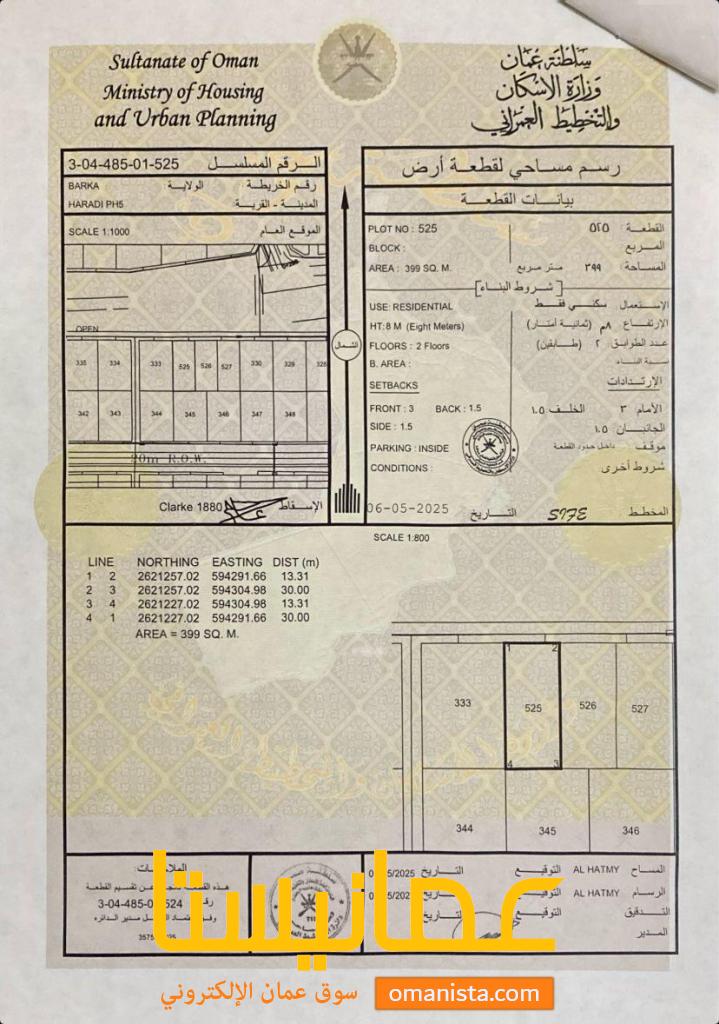 Sultanate of Oman
Ministry of Housing
and Urban Planning
سلطنة عمان
وزارة الإسكان
والتخطيط العمراني
3-04-485-01-525 الرقم المسلسل
BARKA الولاية رقم الخريطة
HARADI PH5 المدينة - القرية
SCALE 1:1000 الموقع العام
OPEN
335 334 333 525 526 527 330 329 328
342 343 344 345 346 347 348
20m R.O.W.
Clarke 1880 الإسقاط
الشمال
رسم مساحي لقطعة أرض
بيانات القطعة
PLOT NO : 525 القطعة : ٥٢٥
BLOCK : المربع
AREA : 399 SQ. M. المساحة : ٣٩٩ متر مربع
[ شروط البناء ]
USE: RESIDENTIAL الإستعمال سكني فقط
HT: 8 M (Eight Meters) الارتفاع ٨م (ثمانية أمتار)
FLOORS : 2 Floors عدد الطوابق ٢ (طابقين)
B. AREA : نسبة البناء
SETBACKS الإرتدادات
FRONT : 3 BACK : 1.5 الأمام ٣ الخلف ١.٥
SIDE : 1.5 الجانبان ١.٥
PARKING : INSIDE موقف داخل حدود القطعة
CONDITIONS : شروط أخرى
06-05-2025 التاريخ SIFE المخطط
SCALE 1:800
LINE NORTHING EASTING DIST (m)
1 2 2621257.02 594291.66 13.31
2 3 2621257.02 594304.98 30.00
3 4 2621227.02 594304.98 13.31
4 1 2621227.02 594291.66 30.00
AREA = 399 SQ. M.
1 2
333 525 526 527
4 3
344 345 346
هذه القطعة عن تقسيم القطعة
رقم 3-04-485-01-524
مدير الدائرة
المساح AL HATMY التوقيع التاريخ /05/2025
الرسام AL HATMY التوقيع التاريخ
التدقيق التوقيع
المدير
عمانيستا
سوق عمان الإلكتروني omanista.com